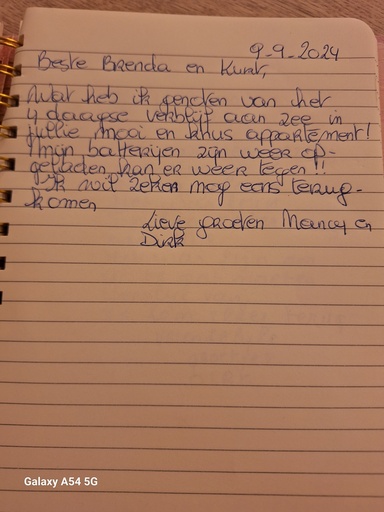 9-9-2024
Beste Brenda en Kurt,
Wat heb ik genoten van het
4 daagse verblijf aan zee in
jullie mooi en knus appartement!
Mijn batterijen zijn weer op-
geladen kan er weer tegen!!
Ik wil zeker nog eens terug-
komen
Lieve groeten Nancy en
Dirk
Galaxy A54 5G